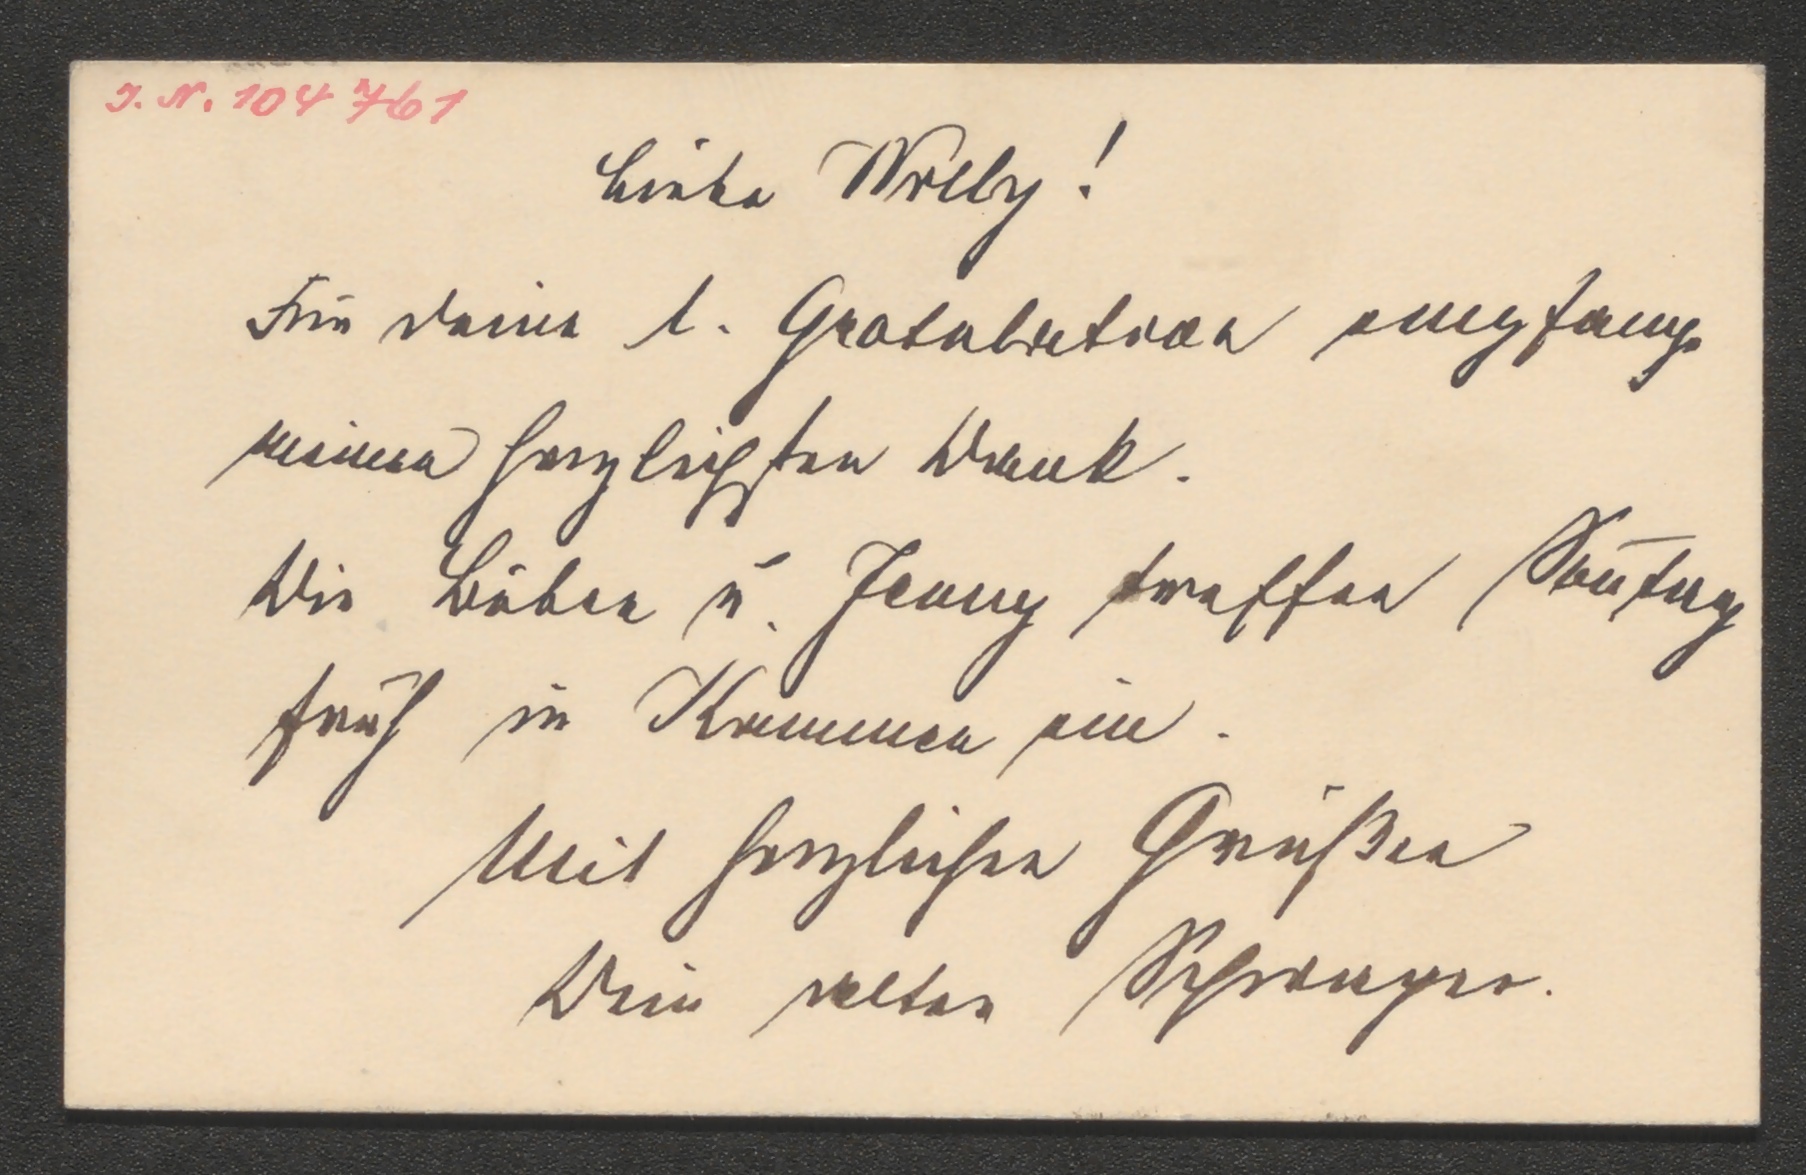 I. N. 104761
Lieber Willy!
Für deine l. Gratulation empfange
meinen herzlichsten Dank.
Die Buben u. Jenny treffen Soñtag
früh in Krummen ein.
Mit herzlichen Grüßen
Dein alter Schwager.